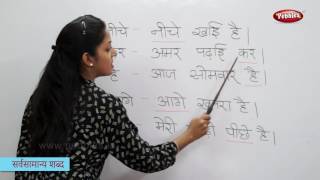 Pebbles
नीचे - नीचे खाई है।
कर - अमर पढाई कर।
है - आज सोमवार है।
आगे - आगे खतरा है।
मेरी पीछे है।
सर्वसामान्य शब्द